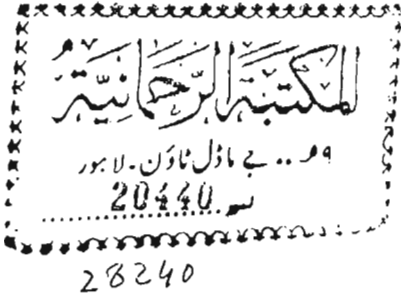 المكتبة الرحمانية
۹۹ .. جے ماڈل ٹاؤن ۔ لاہور
نمبر 20440
28240